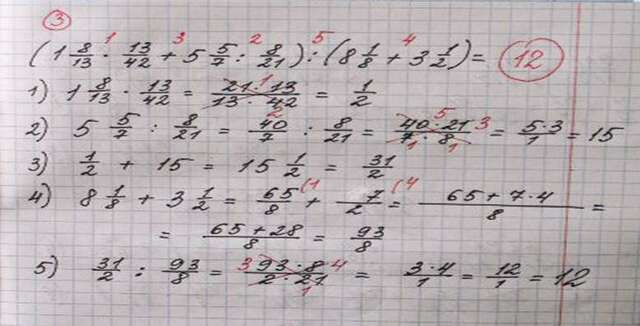 ③
(1 8/13 · 13/42 + 5 5/7 : 8/21) : (8 1/8 + 3 1/2) = 12
1 3 2 5 4
1) 1 8/13 · 13/42 = 21·13/13·42 = 1/2
1 2
2) 5 5/7 : 8/21 = 40/7 : 8/21 = 40·21/7·8 = 5·3/1 = 15
5 3 1 1
3) 1/2 + 15 = 15 1/2 = 31/2
4) 8 1/8 + 3 1/2 = 65/8 (1 + 7/2 (4 = 65 + 7·4/8 =
= 65 + 28/8 = 93/8
5) 31/2 : 93/8 = 93·8/2·21 = 3·4/1 = 12/1 = 12
3 4 1